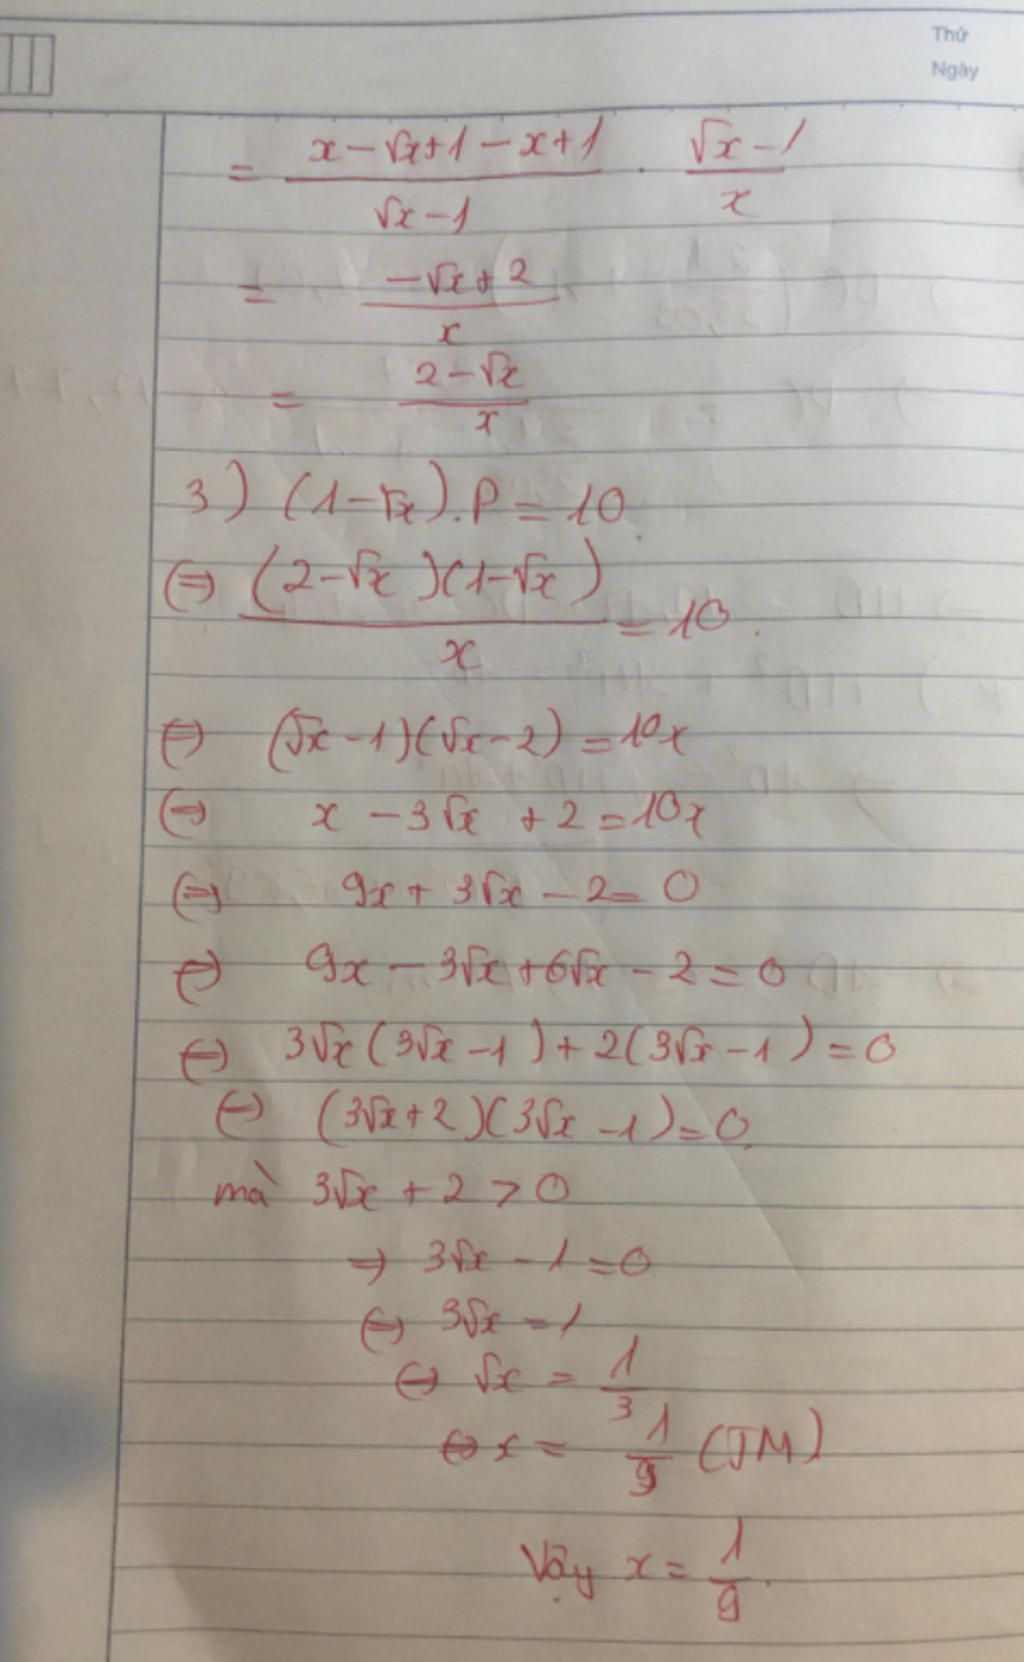 Thứ
Ngày
= (x - √x + 1 - x + 1)/(√x - 1) . (√x - 1)/x
= (-√x + 2)/x
= (2 - √x)/x
3) (1 - √x).P = 10
⇔ ((2 - √x)(1 - √x))/x = 10.
⇔ (√x - 1)(√x - 2) = 10x
⇔ x - 3√x + 2 = 10x
⇔ 9x + 3√x - 2 = 0
⇔ 9x - 3√x + 6√x - 2 = 0
⇔ 3√x(3√x - 1) + 2(3√x - 1) = 0
⇔ (3√x + 2)(3√x - 1) = 0
mà 3√x + 2 > 0
⇒ 3√x - 1 = 0
⇔ 3√x = 1
⇔ √x = 1/3
⇔ x = 1/9 (TM)
Vậy x = 1/9.